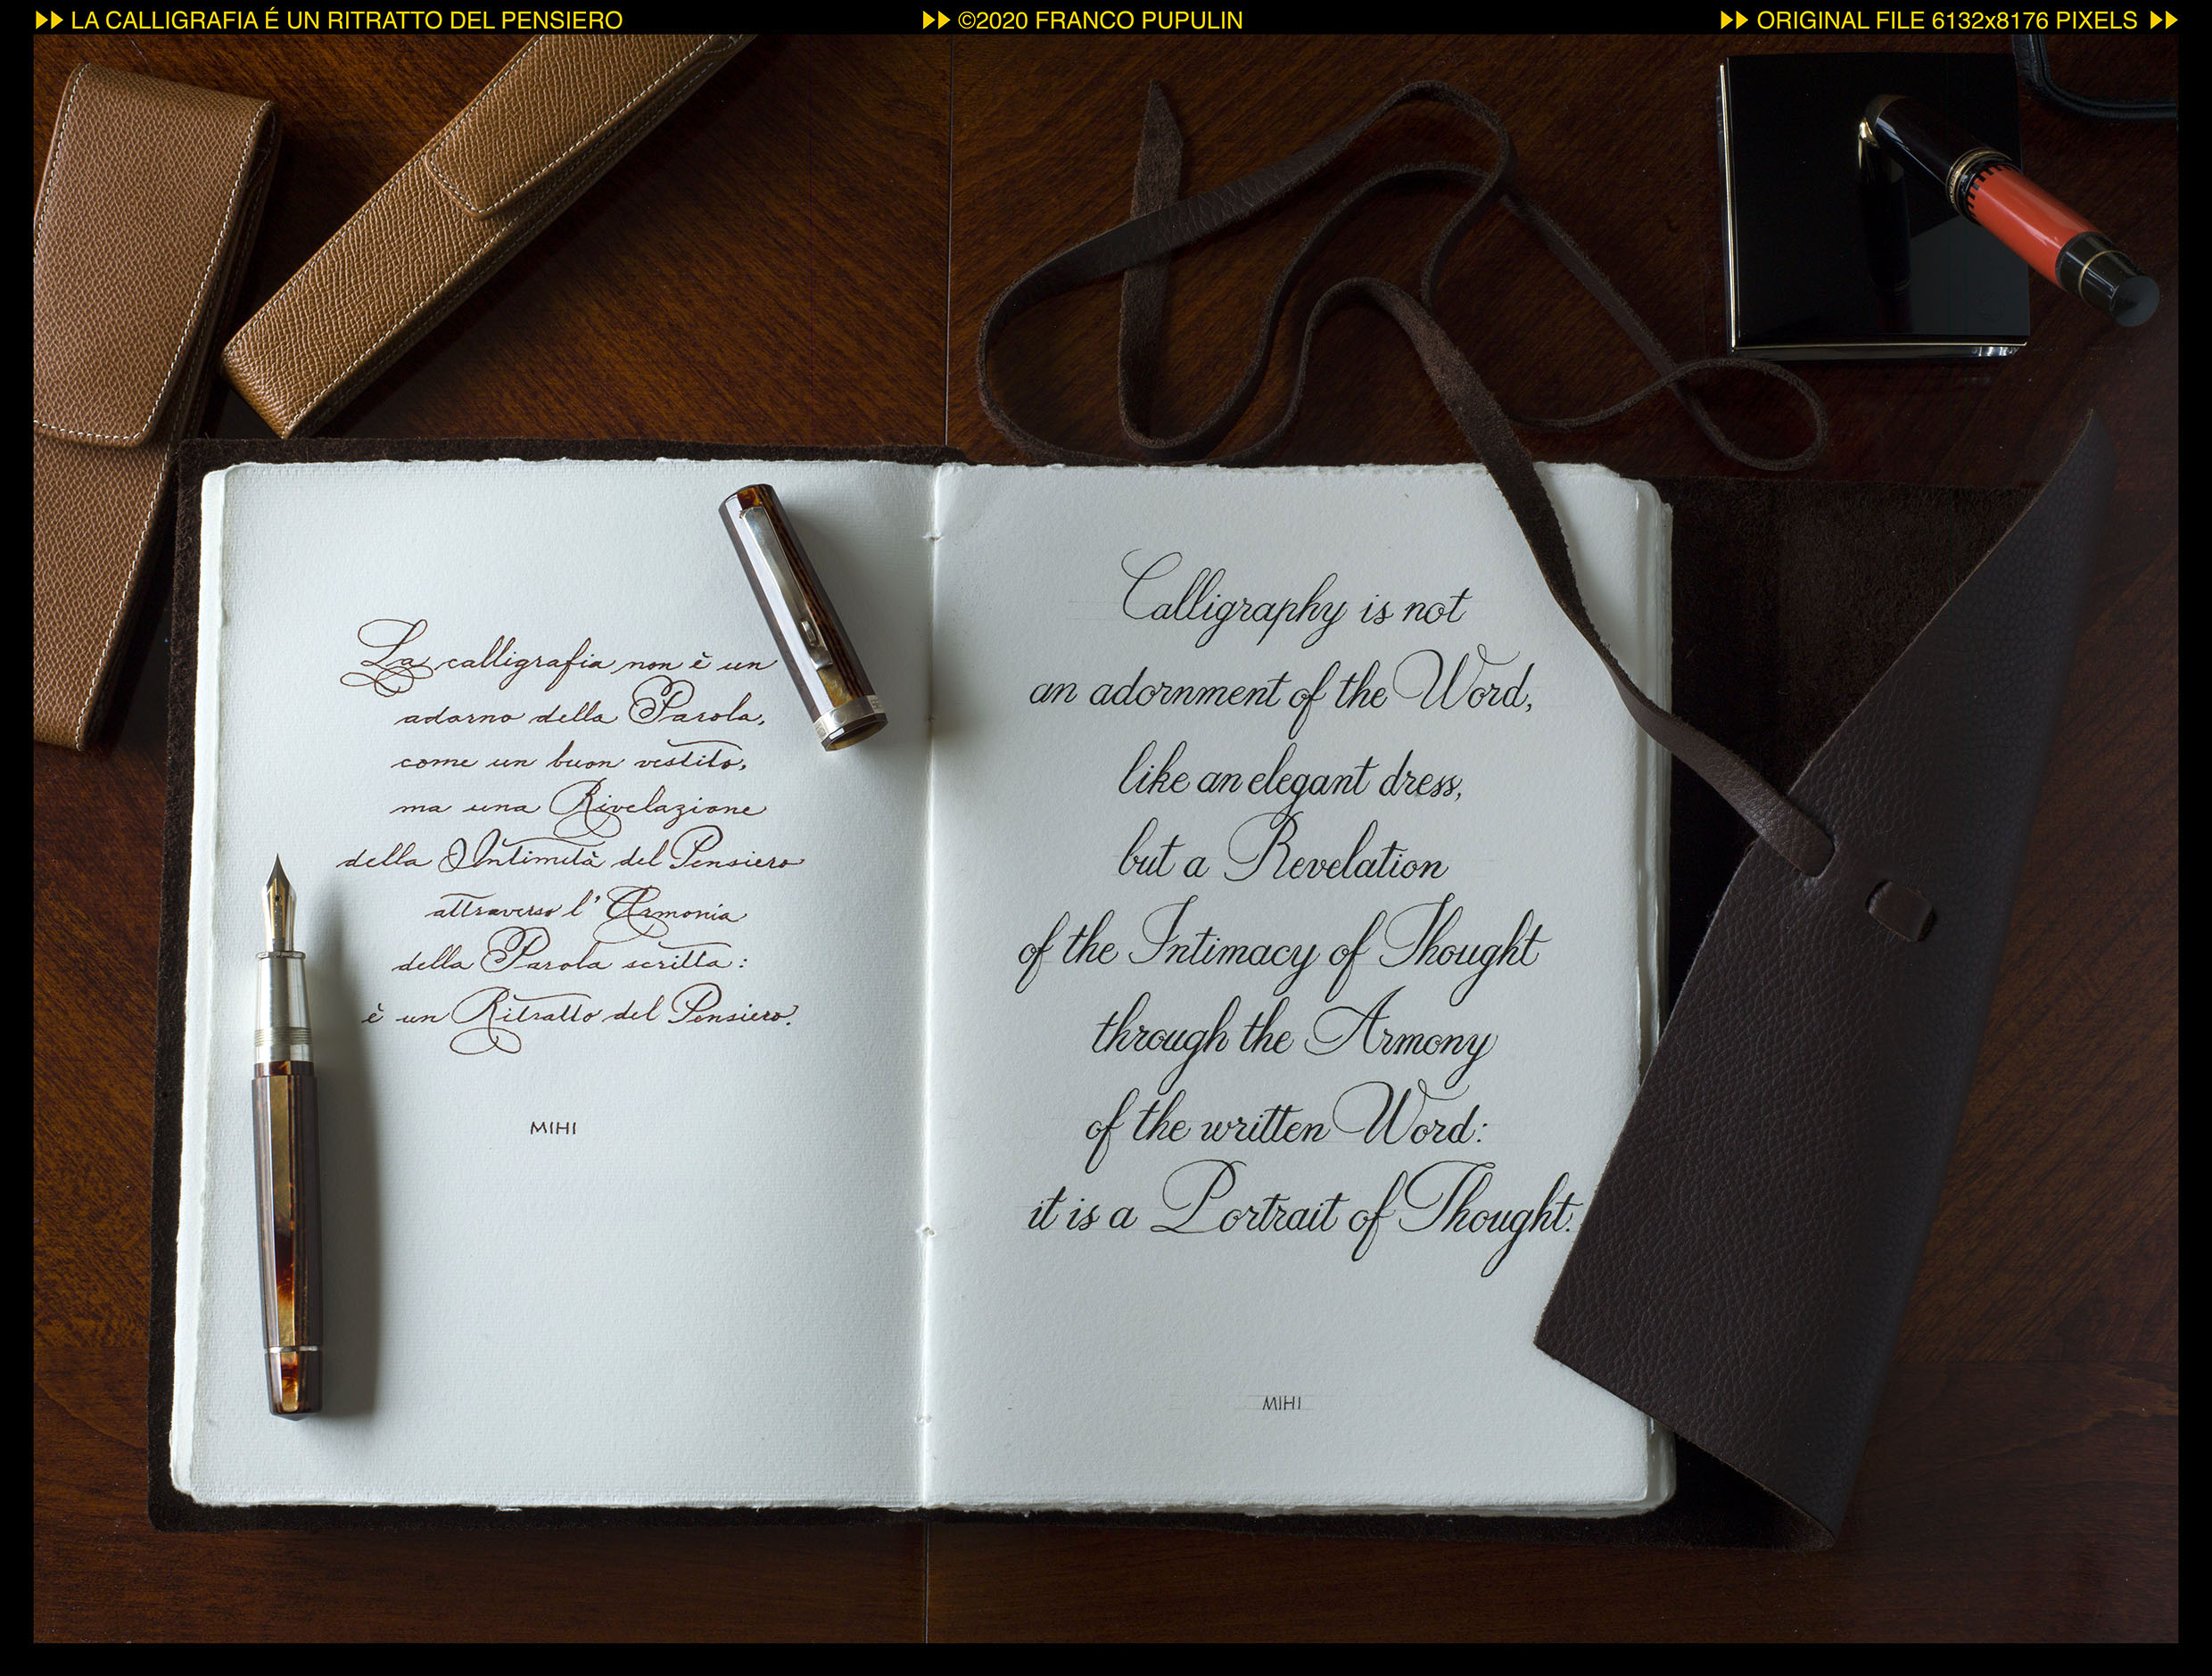 LA CALLIGRAFIA É UN RITRATTO DEL PENSIERO
©2020 FRANCO PUPULIN
ORIGINAL FILE 6132x8176 PIXELS
La calligrafia non è un
adorno della Parola,
come un buon vestito,
ma una Rivelazione
della Intimità del Pensiero
attraverso l'Armonia
della Parola scritta:
è un Ritratto del Pensiero.
MIHI
Calligraphy is not
an adornment of the Word,
like an elegant dress,
but a Revelation
of the Intimacy of Thought
through the Armony
of the written Word:
it is a Portrait of Thought.
MIHI